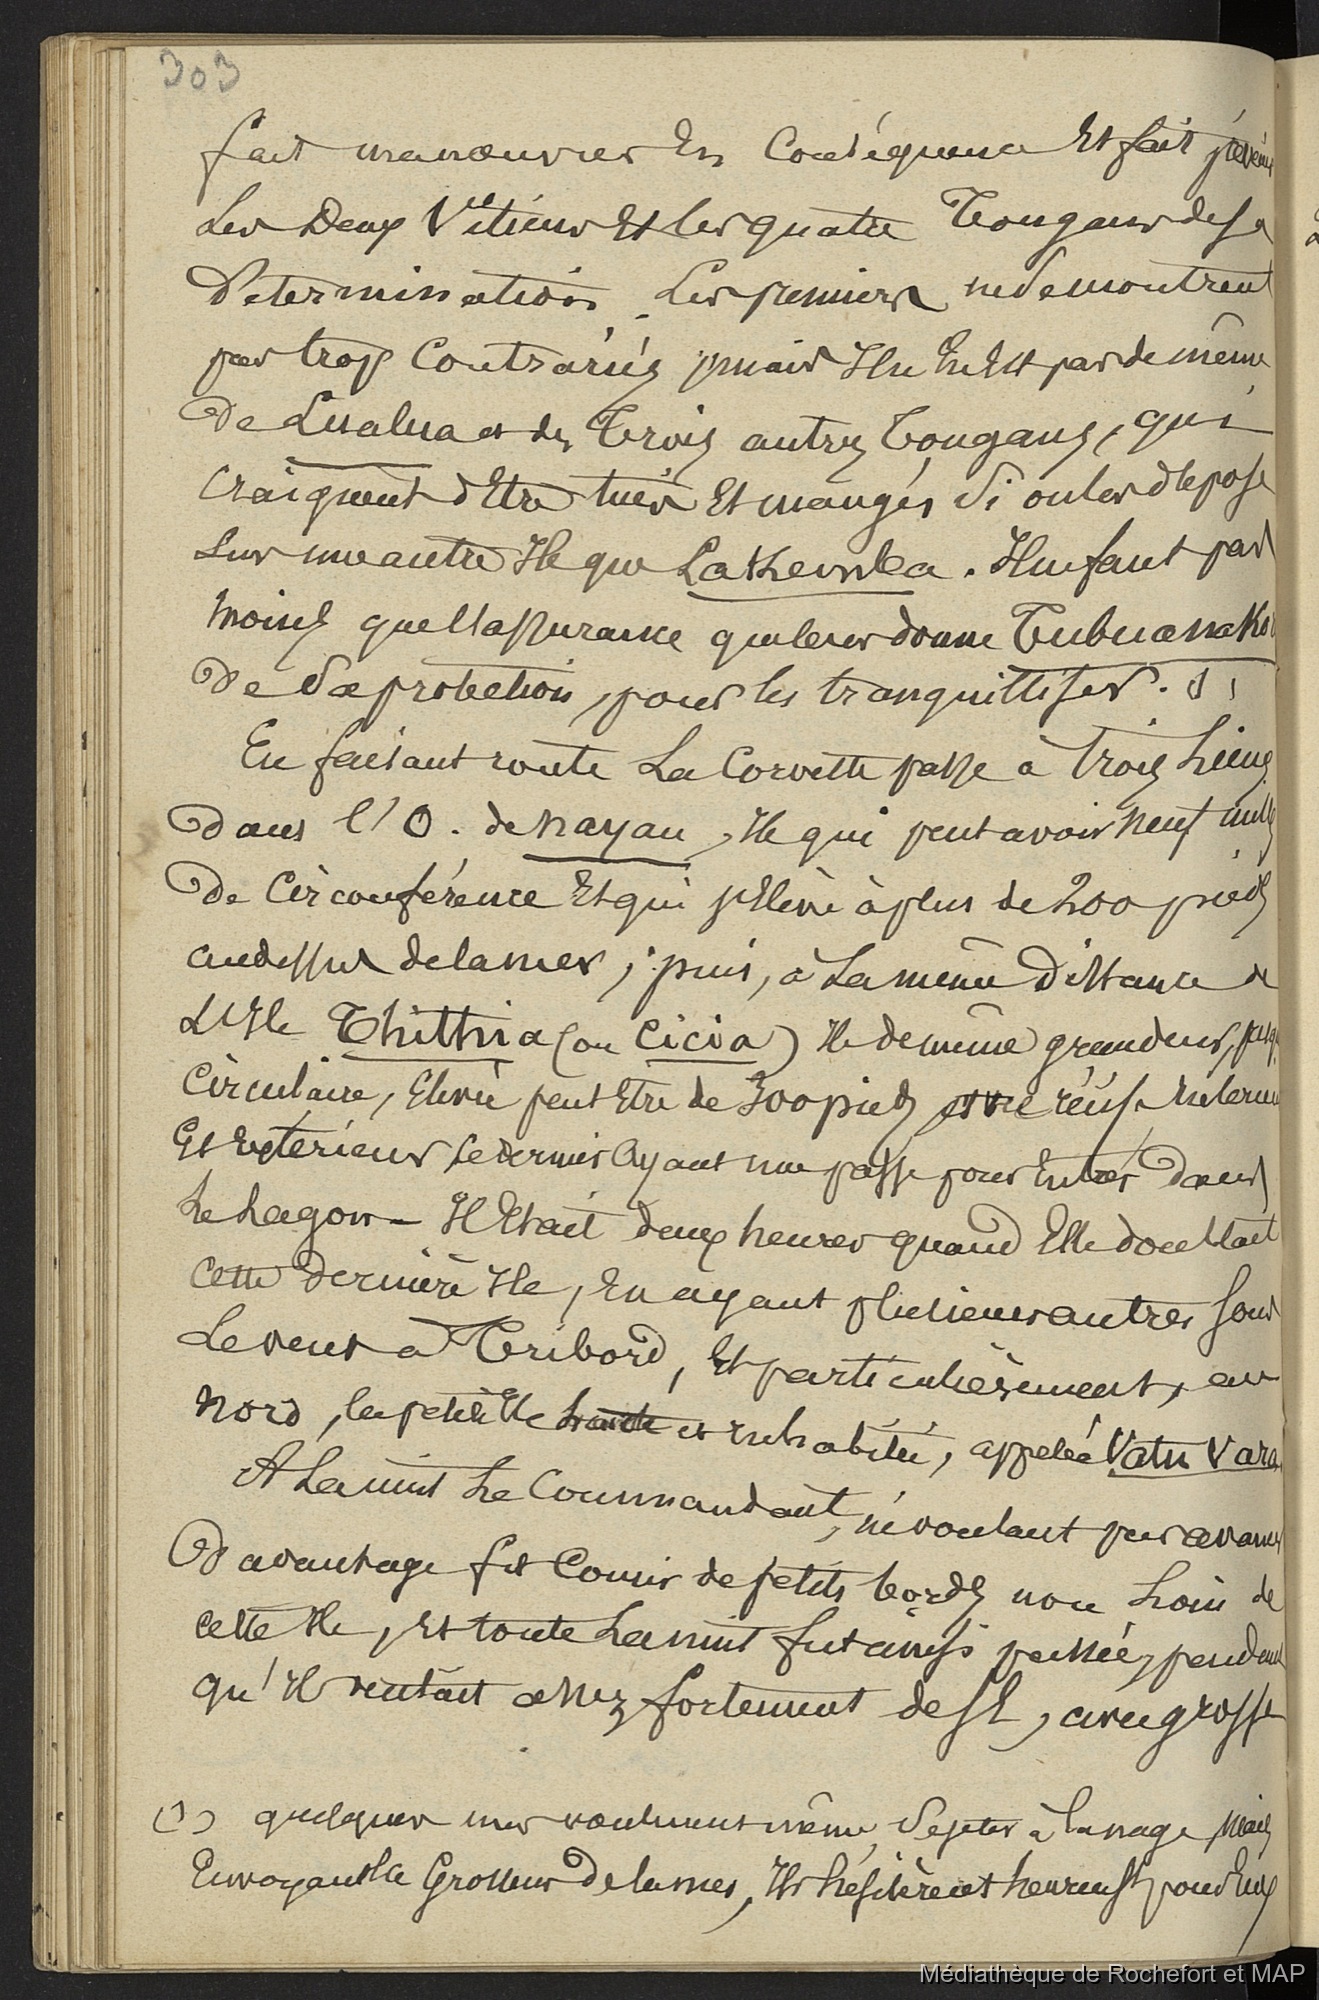 303
fait manœuvrer En Conséquence Et fait prévenir
Les Deux Vitiens Et les quatre Tongans de sa
Détermination. Les premiers ne se montrent
pas trop Contrariés, mais Il n'En Est pas de même
De Lualua et des Trois autres Tongans, qui
Craignent d'Etre tués Et mangés Si on les dépose
Sur une autre Ile que Lakhemba. Il ne faut pas
moins que l'assurance que leur donne Tubuanakoro
De Sa protection, pour les tranquilliser. (1)
En faisant route La Corvette passe à Trois Lieues
Dans l'O. de Nayau, Ile qui peut avoir neuf milles
De Circonférence Et qui s'Elève à plus de 200 pieds
au dessus de la mer ; puis, à La même Distance de
L'Ile Thithia (ou Cicia) Ile de même grandeur, presque
Circulaire, Elevée peut Etre de 300 pieds avec récifs Intérieur
Et Extérieur, ce dernier Ayant une passe pour Entrer Dans
Le Lagon – Il Etait deux heures quand Elle doublait
Cette Dernière Ile, En ayant plusieurs autres Sous
Le vent à Tribord, Et particulièrement, au
Nord, la petite Ile haute et inhabitée, appelée Vatu Vara.
A La nuit Le Commandant, ne voulant pas avancer
Davantage fit Courir de petits bords non Loin de
cette Ile, Et toute La nuit fut ainsi passée, pendant
qu'Il ventait assez fortement de SE, avec grosse
(1) quelques uns voulurent même, Se jeter à la nage, Mais
En voyant la Grosseur De la mer, Ils hésitèrent heureusᵗ pour Eux